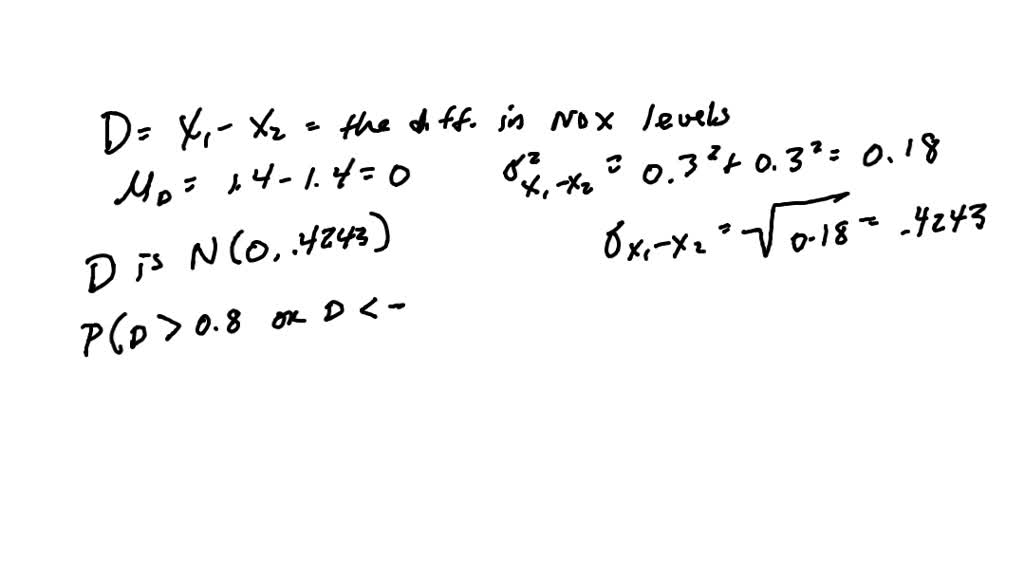 D = X₁ - X₂ = the diff. in NOX levels
μ_D = 1.4 - 1.4 = 0
σ²_X₁-X₂ = 0.3² + 0.3² = 0.18
σ_X₁-X₂ = √0.18 = .4243
D is N(0, .4243)
P(D > 0.8 or D < -